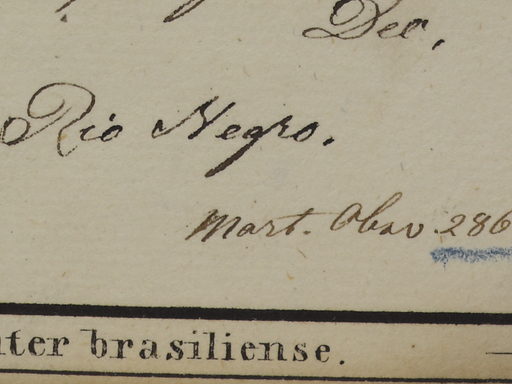 Dec,
Rio Negro.
Mart. Obsv. 286
ter brasiliense.